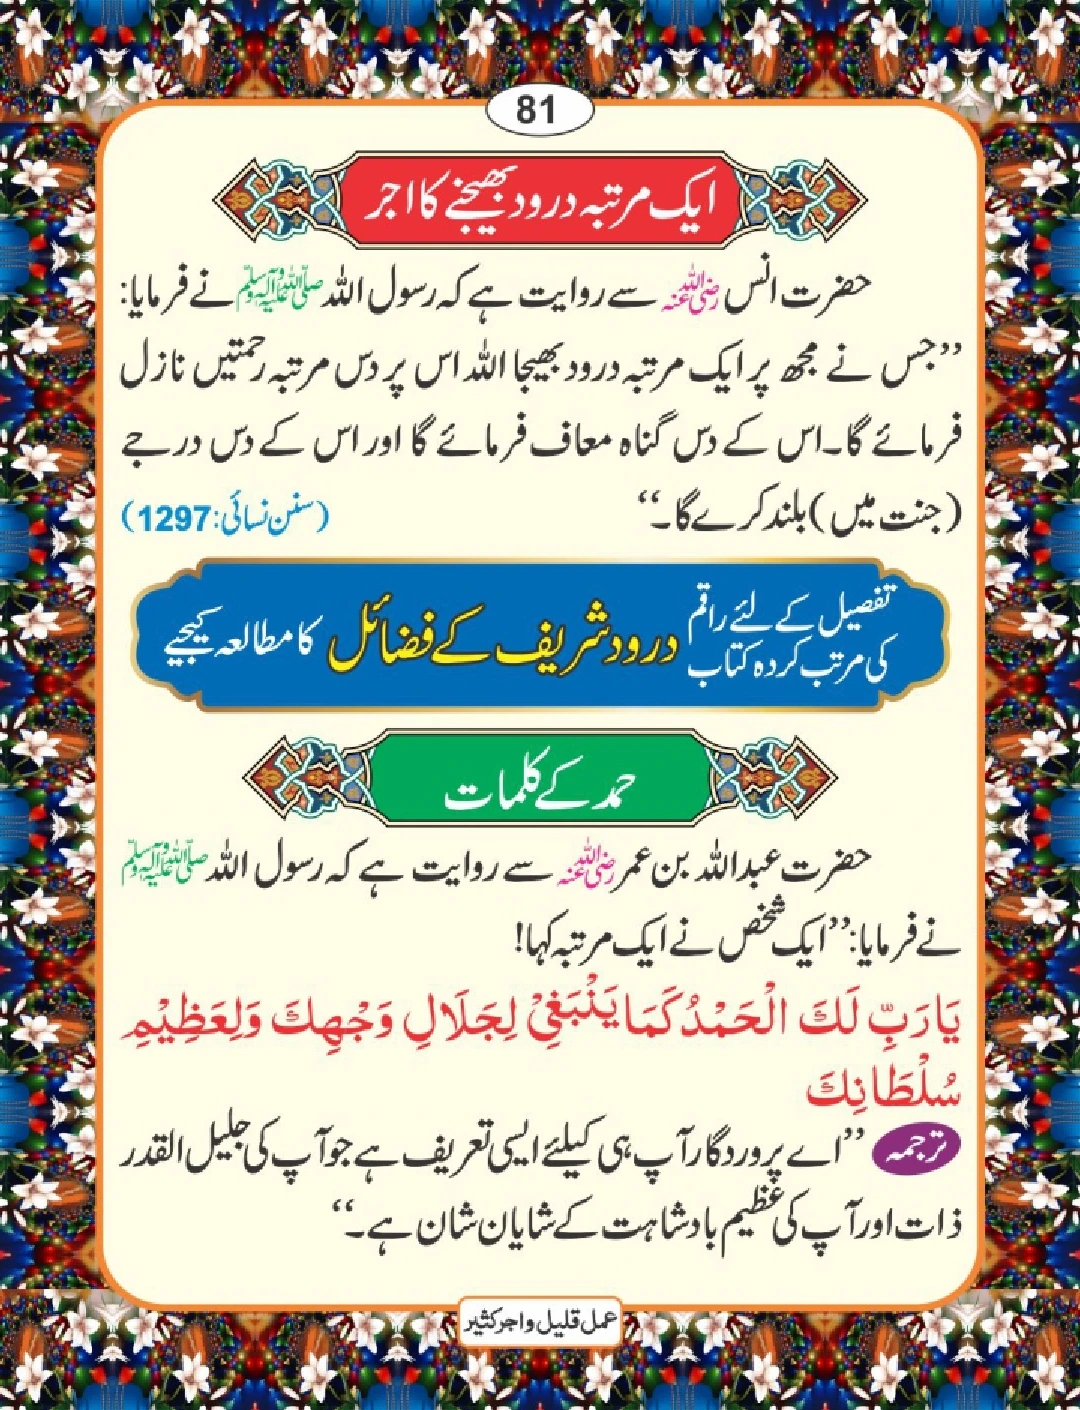 81
ایک مرتبہ درود بھیجنے کا اجر
حضرت انس رضی اللہ عنہ سے روایت ہے کہ رسول اللہ صلی اللہ علیہ وآلہ وسلم نے فرمایا:
’’جس نے مجھ پر ایک مرتبہ درود بھیجا اللہ اس پر دس مرتبہ رحمتیں نازل
فرمائے گا۔ اس کے دس گناہ معاف فرمائے گا اور اس کے دس درجے
(جنت میں) بلند کرے گا۔‘‘ (سنن نسائی: 1297)
تفصیل کے لئے راقم
کی مرتب کردہ کتاب
درود شریف کے فضائل کا مطالعہ کیجیے
حمد کے کلمات
حضرت عبداللہ بن عمر رضی اللہ عنہ سے روایت ہے کہ رسول اللہ صلی اللہ علیہ وآلہ وسلم
نے فرمایا: ’’ایک شخص نے ایک مرتبہ کہا!
يَارَبِّ لَكَ الْحَمْدُ كَمَا يَنْبَغِيْ لِجَلَالِ وَجْهِكَ وَلِعَظِيْمِ
سُلْطَانِكَ
ترجمہ ’’اے پروردگار آپ ہی کیلئے ایسی تعریف ہے جو آپ کی جلیل القدر
ذات اور آپ کی عظیم بادشاہت کے شایان شان ہے۔‘‘
عمل قلیل و اجر کثیر